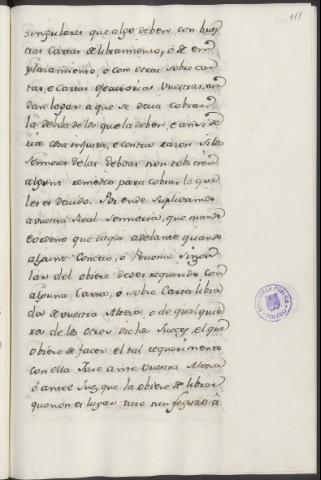 111
singulares que algo deben con bues
tras cartas de libramiento, ó de em
plazamiento, o con otras sobre car
tas, e cartas executorias vuestras, non
dan logar a que se deva cobrar
la debda de los que la deben, e
cosa injusta, e contra razon si los
Sennores de las debdas non tobiesen
algunt remedio para cobrar lo que
les es devido. Por ende suplicamos
a vuestra Real Sennoria, que mande
e ordene que daqui adelante quando
algunt Concejo, ó Persona singu
lar del obiere de ser requerido con
alguna Carta, ó sobre Carta libra
da de vuestra Alteza, o de qualquie
ra de los otros dichos Jueces, el que
obiere de facer el tal requerimiento
con ella Jure ante vuestra Alteza
ó ante el Juez que la obiere de librar
que non es lugar nin seguro á
BIBLIOTECA PUBLICA TOLEDO